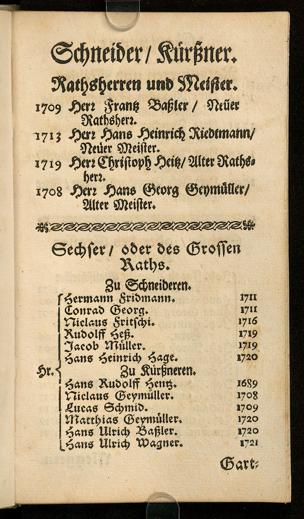 Schneider/ Kürßner.
Rathsherren und Meister.
1709 Herr Frantz Baßler / Neüer
Rathsherr.
1713 Herr Hans Heinrich Riedtmann/
Neüer Meister.
1719 Herr Christoph Heitz/ Alter Raths-
herr.
1708 Herr Hans Georg Geymüller/
Alter Meister.
Sechser / oder des Grossen
Raths.
Zu Schneideren.
Hermann Fridmann. 1711
Conrad Georg. 1711
Niclaus Fritschi. 1716
Rudolff Heß. 1719
Jacob Müller. 1719
Hans Heinrich Hage. 1720
Hr. Zu Kürßneren.
Hans Rudolff Hentz. 1689
Niclaus Geymüller. 1708
Lucas Schmid. 1709
Matthias Geymüller. 1720
Hans Ulrich Baßler. 1720
Hans Ulrich Wagner. 1721
Gart-